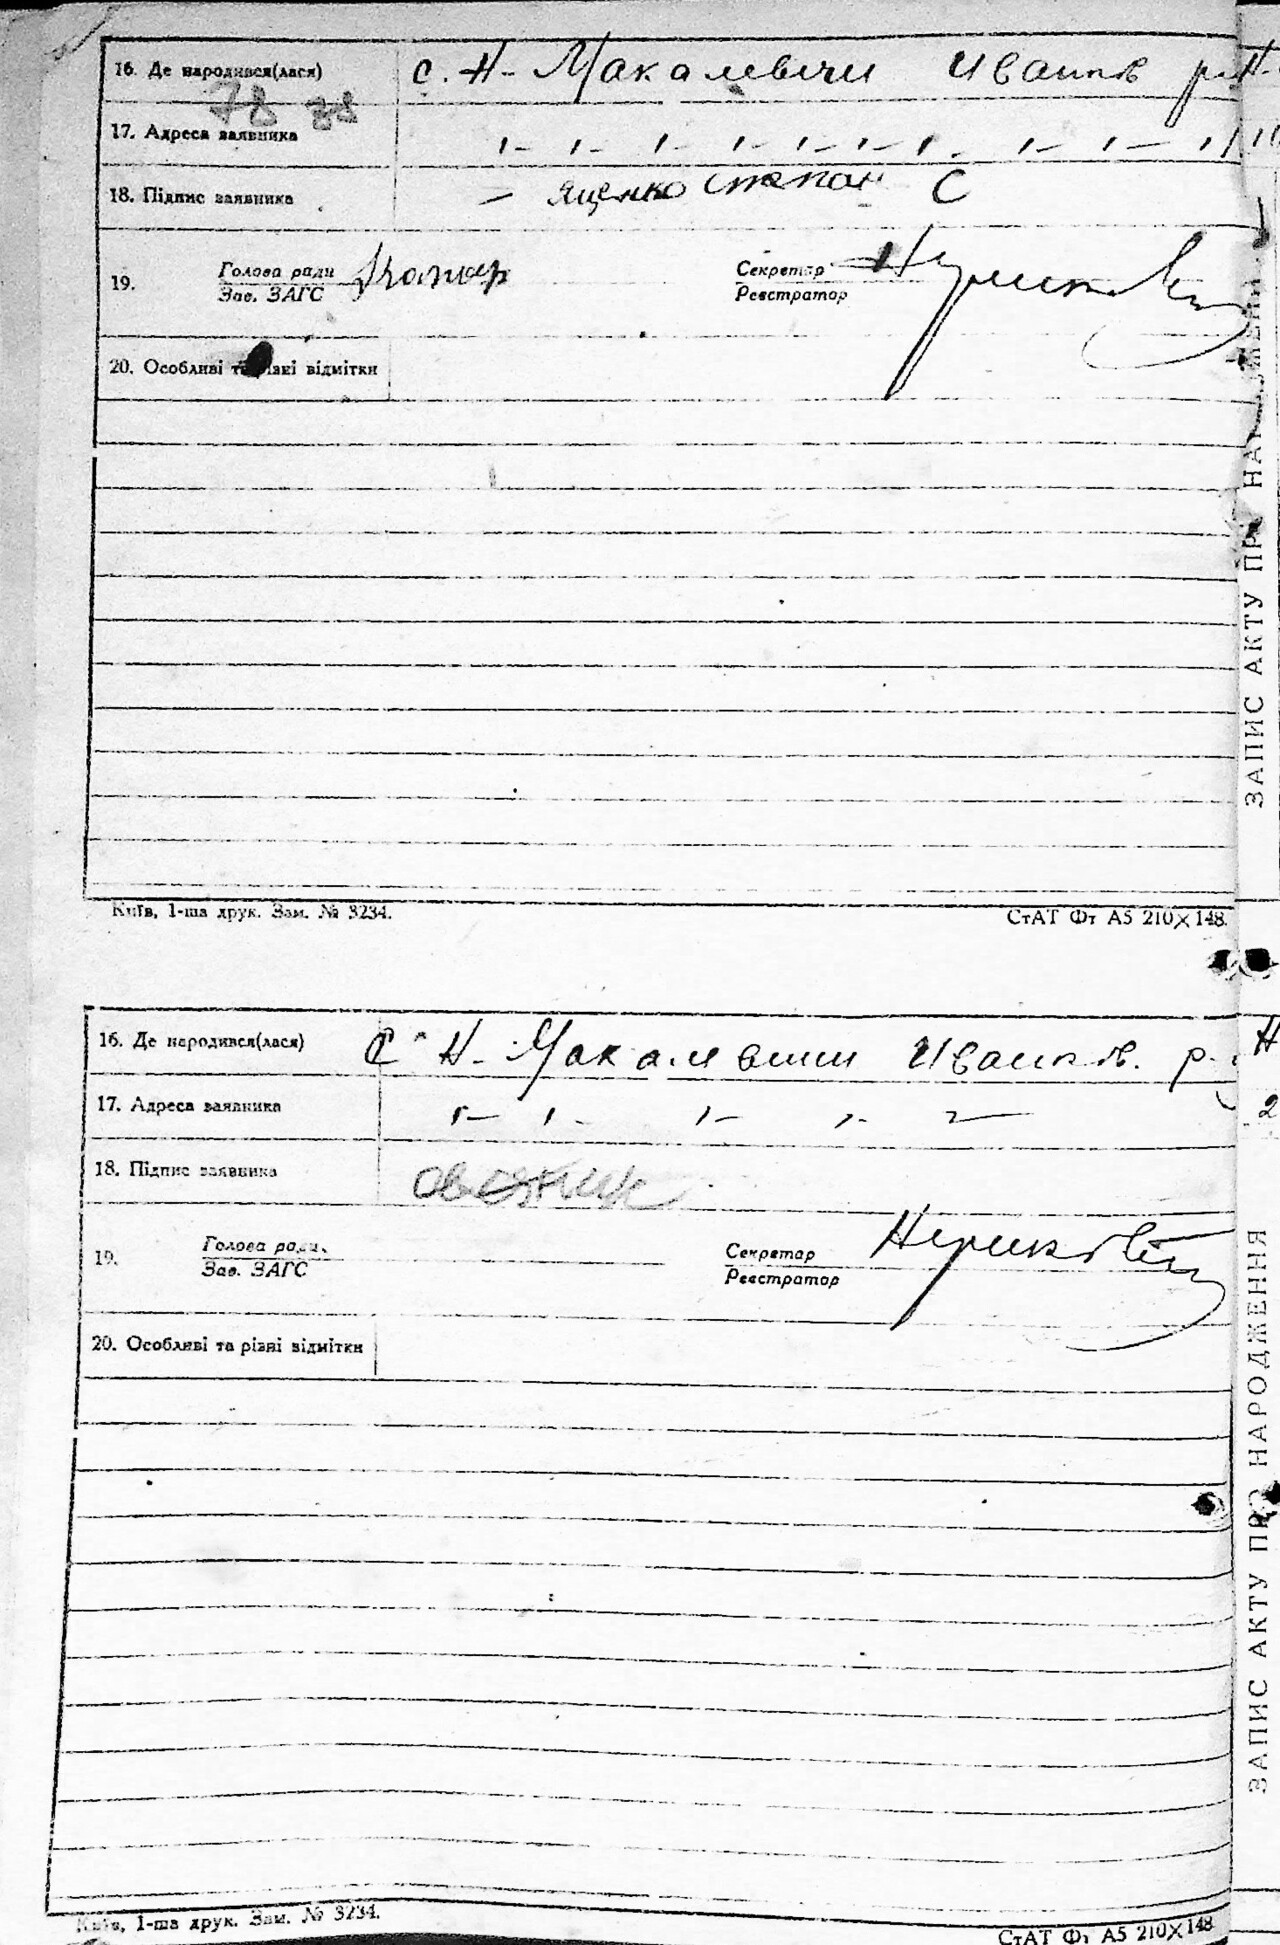 16. Де народився(лася) с. Н-Макалевичи Иванков р
78
17. Адреса заявника
18. Підпис заявника Яценко Степан С
19. Голова ради Секретар
Зав. ЗАГС Реєстратор
20. Особливі та різні відмітки
Київ, 1-ша друк. Зам. № 3234. СтАТ Фт А5 210×148.
16. Де народився(лася) С Н-Макалевичи Иванков. р.
17. Адреса заявника
18. Підпис заявника
19. Голова ради Секретар
Зав. ЗАГС Реєстратор
20. Особливі та різні відмітки
Київ, 1-ша друк. Зам. № 3234. СтАТ Фт А5 210×148
ЗАПИС АКТУ ПРО НАРОДЖЕННЯ
ЗАПИС АКТУ ПРО НАРОДЖЕННЯ